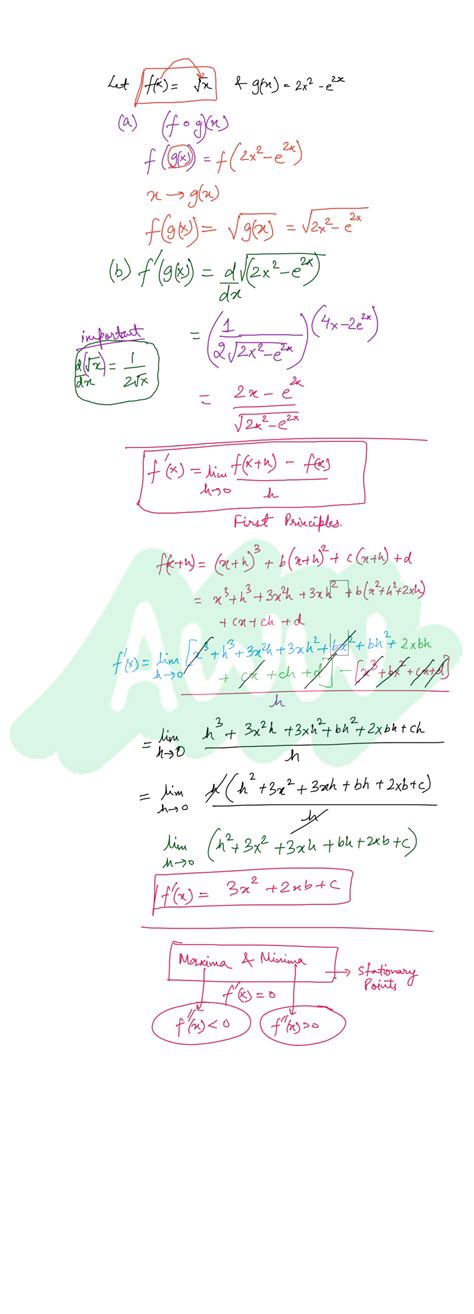 Let f(x) = √x & g(x) = 2x² - e²ˣ
(a) (f∘g)(x)
f(g(x)) = f(2x² - e²ˣ)
x → g(x)
f(g(x)) = √g(x) = √(2x² - e²ˣ)
(b) f'(g(x)) = d/dx √(2x² - e²ˣ)
important
d(√x)/dx = 1/(2√x)
= (1/(2√(2x² - e²ˣ)))(4x - 2e²ˣ)
= (2x - e²ˣ)/√(2x² - e²ˣ)
f'(x) = lim h→0 (f(x+h) - f(x))/h
First Principles.
f(x+h) = (x+h)³ + b(x+h)² + c(x+h) + d
= x³ + h³ + 3x²h + 3xh² + b(x² + h² + 2xh)
+ cx + ch + d
f'(x) = lim h→0 [x³ + h³ + 3x²h + 3xh² + bx² + bh² + 2xbh
+ cx + ch + d] - [x³ + bx² + cx + d]
h
= lim h→0 (h³ + 3x²h + 3xh² + bh² + 2xbh + ch)/h
= lim h→0 h(h² + 3x² + 3xh + bh + 2xb + c)/h
lim h→0 (h² + 3x² + 3xh + bh + 2xb + c)
f'(x) = 3x² + 2xb + c
Maxima & Minima → Stationary Points
f'(x) = 0
f''(x) < 0 f''(x) > 0